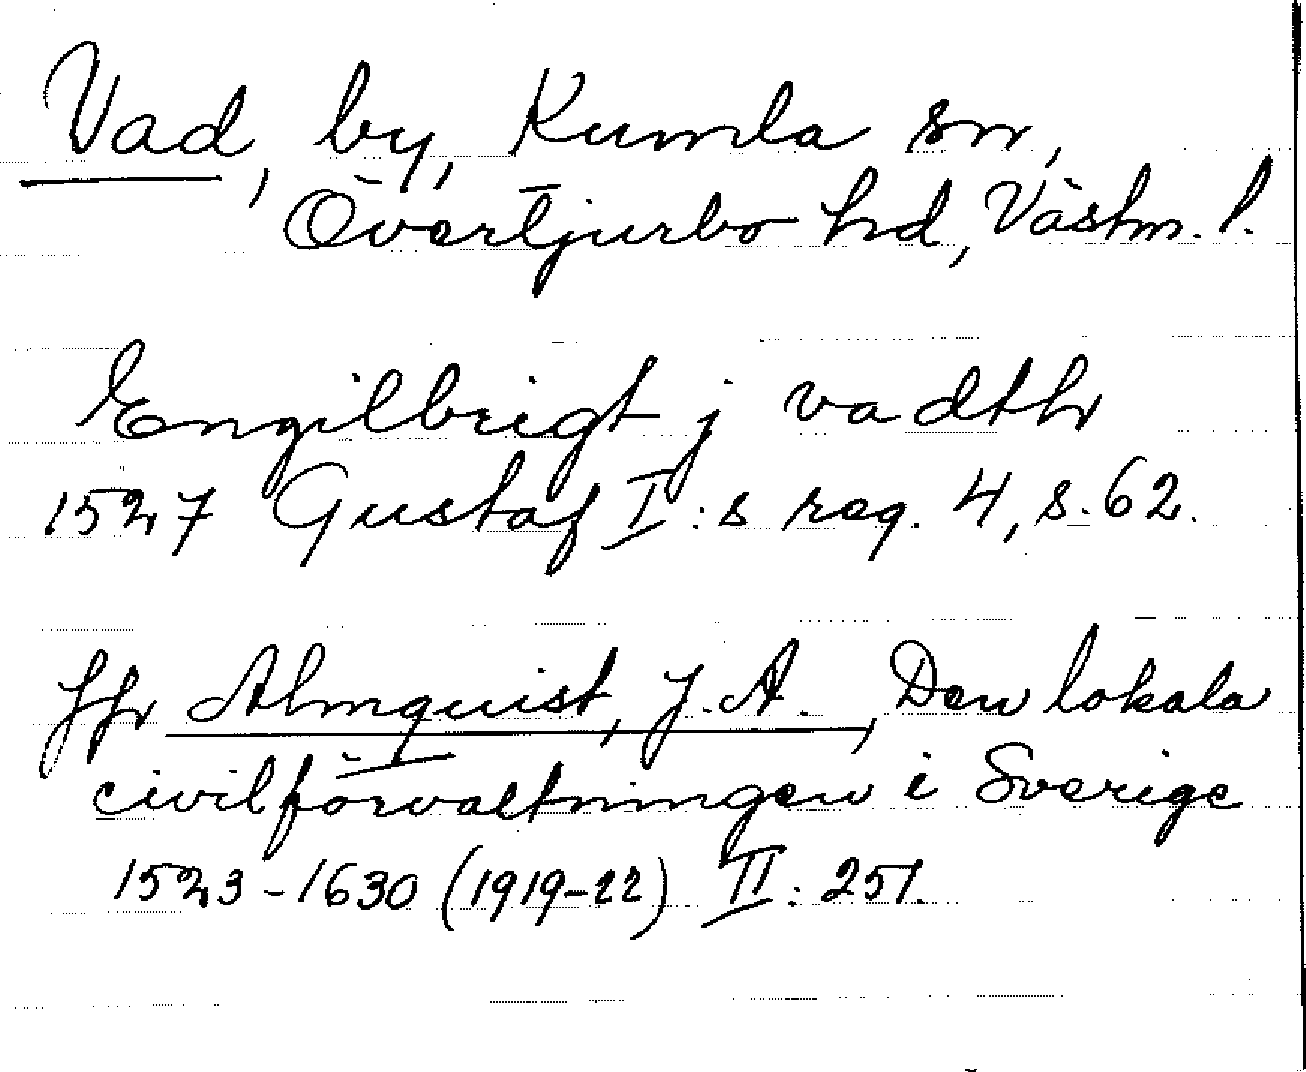 Vad, by, Kumla sn,
Övertjurbo hd, Västm. l.
Engilbrigt j vadthr
1527 Gustaf I:s reg. 4, s. 62.
Jfr Almquist, J. A., Den lokala
civilförvaltningen i Sverige
1523-1630 (1919-22) II: 251.